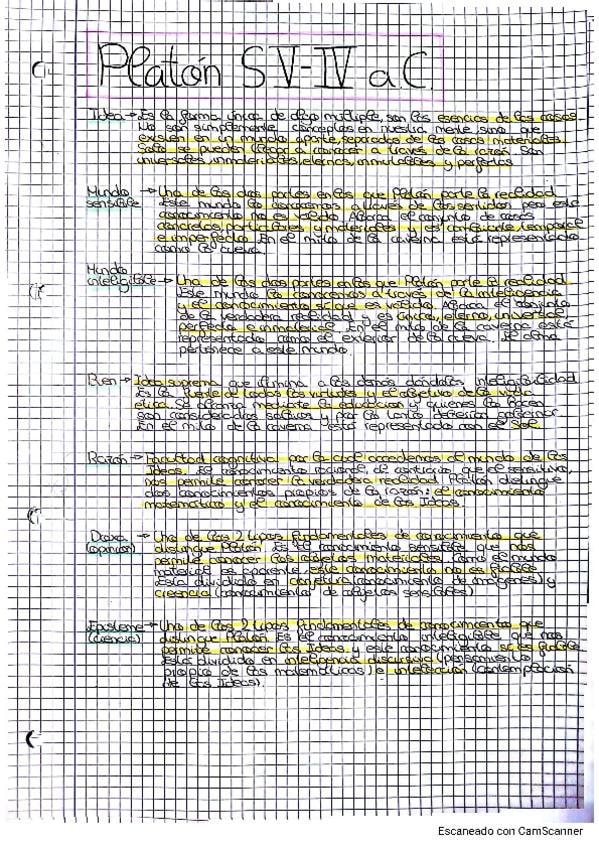 Platón S V-IV a.C.
Idea → Es la forma única de algo múltiple, son las esencias de las cosas.
No son simplemente conceptos en nuestra mente, sino que
existen en un mundo aparte, separadas de las cosas materiales.
Solo se pueden llegar a conocer a través de la razón. Son
universales, inmateriales, eternas, inmutables y perfectas.
Mundo sensible → Una de las dos partes en las que Platón parte la realidad.
Este mundo lo conocemos a través de los sentidos pero este
conocimiento no es válido. Abarca el conjunto de cosas
concretas, particulares y materiales y es cambiante, temporal
e imperfecto. En el mito de la caverna está representado
como la cueva.
Mundo inteligible → Una de las dos partes en las que Platón parte la realidad.
Este mundo lo conocemos a través de la inteligencia
y el conocimiento si que es válido. Abarca el conjunto
de la verdadera realidad y es único, eterno, universal,
perfecto e inmaterial. En el mito de la caverna está
representado como el exterior de la cueva. El alma
pertenece a este mundo.
Bien → Idea suprema que ilumina a las demás dándolas inteligibilidad.
Es la fuente de todas las virtudes y el objetivo de la vida
ética. Se alcanza mediante la educación y quienes lo logran
son considerados sabios y por lo tanto deberían gobernar.
En el mito de la caverna está representado con el Sol.
Razón → Facultad cognitiva por la cual accedemos al mundo de las
Ideas. Es conocimiento racional, al contrario que el sensitivo,
nos permite conocer la verdadera realidad. Platón distingue
dos conocimientos propios de la razón: el conocimiento
matemático y el conocimiento de las Ideas.
Doxa (opinión) → Una de los 2 tipos fundamentales de conocimiento que
distingue Platón. Es el conocimiento sensible que nos
permite conocer los objetos materiales. Como el mundo
material es aparente, este conocimiento no es fiable.
Está dividida en conjetura (conocimiento de imágenes) y
creencia (conocimiento de objetos sensibles).
Episteme (ciencia) → Una de los 2 tipos fundamentales de conocimiento que
distingue Platón. Es el conocimiento inteligible que nos
permite conocer las Ideas y este conocimiento si es fiable.
Está dividido en inteligencia discursiva (pensamiento
propio de las matemáticas) e intelección (contemplación
de las Ideas).
Escaneado con CamScanner